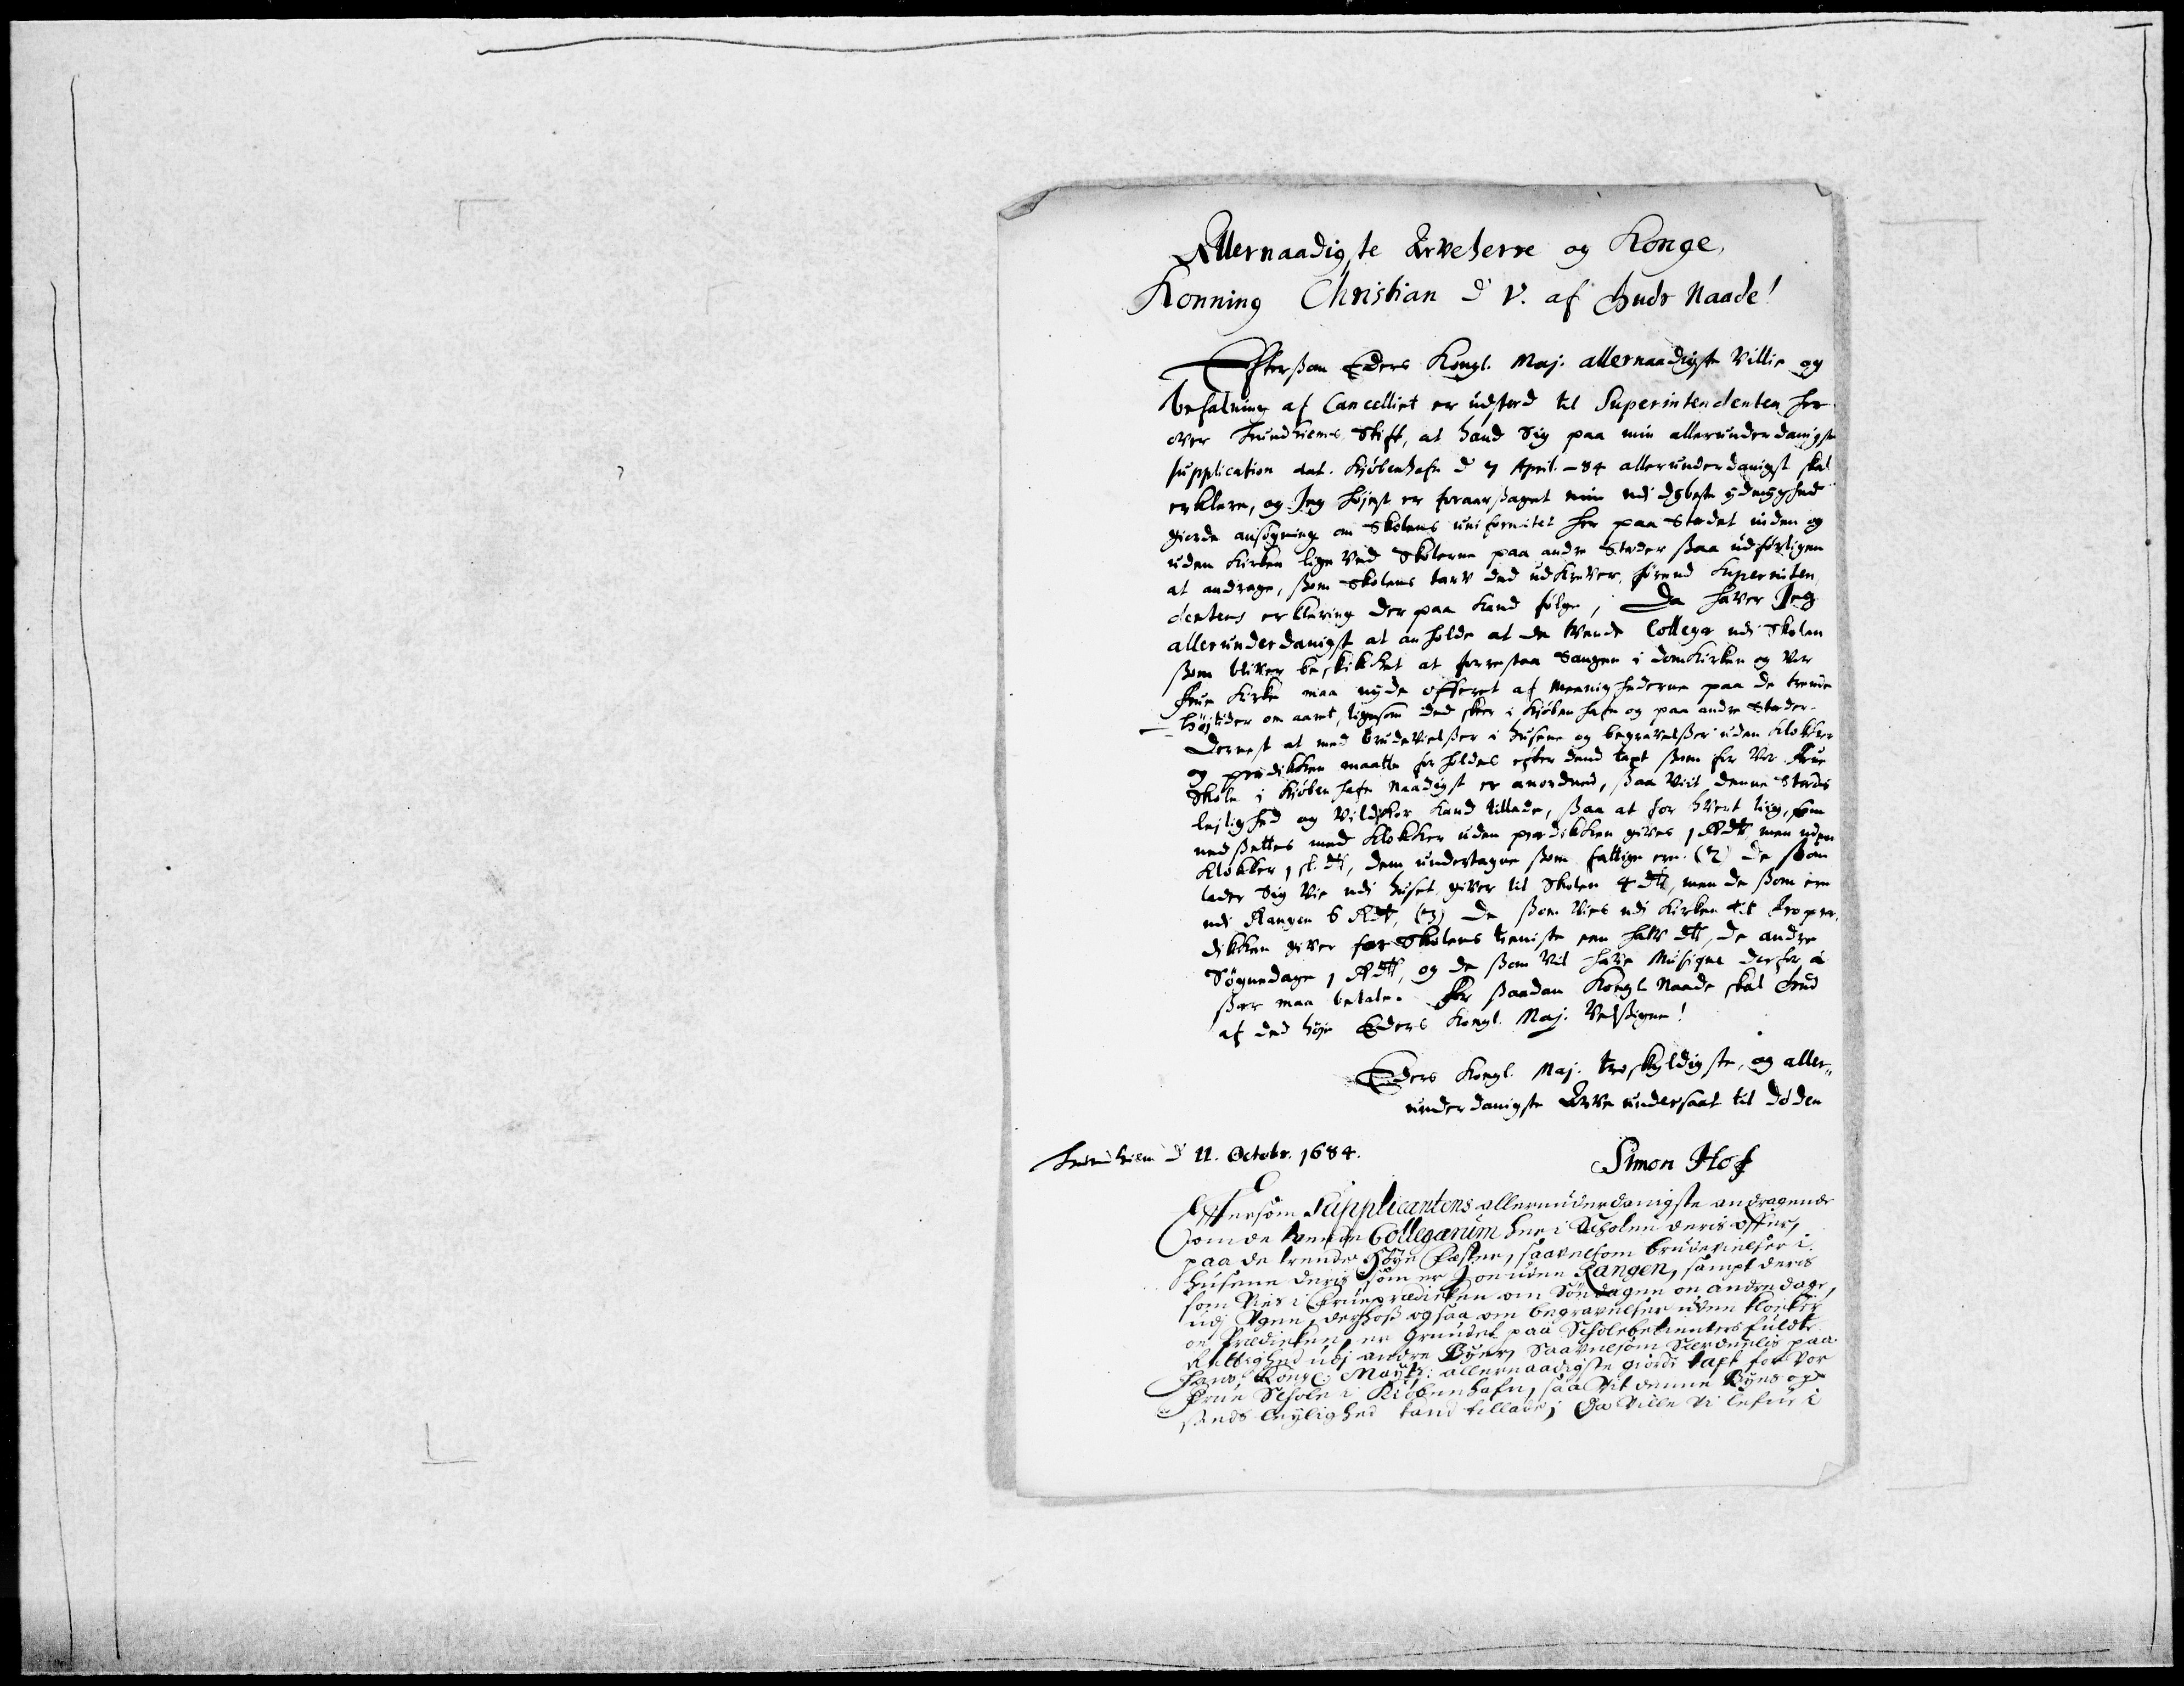 Allernaadigste Arveherre og Konge,
Konning Christian d V. af Guds Naade!
Efterßom Eders Kongl. Maj. allernaadigste Villie og
befalning af Cancelliet er udsted til Superintendenten her
over Trundhiems Stift, at hand Sig paa min allerunderdanigste
supplication dat. Kiøbenhafn d 7 April. -84 allerunderdanigst skal
erklere, og Jeg høyest er foraarßaget min udi dybeste ydmyghed
giorde ansøgning om Skolens uniformitet her paa Stedet inden og
uden Kirken lige ved Skolerne paa andre Steder ßaa udførligen
at andrage, ßom Skolens tarv ded udkrever, førend Superinten
dentens erklering der paa kand følge, Da haver Jeg
allerunderdanigst at anholde at de tvende Collegar udi Skolen
ßom bliver beskikket at forrestaa Sangen i domkirken og Vor
Frue Kirke maa nyde offeret af meenighederne paa de trende
Højtider om aaret, ligesom ded skeer i Kiøbenhafn og paa andre Steder.
Dernest at med brudevielßer i husene og begravelßer uden Klokker
og predikken maatte forholdes efter dend taxt ßom for Vor Frue
Skole i Kiøbenhafn Naadigst er anordned, ßaa vit denne Steds
lejlighed og Vilchor kand tillade, ßaa at for hvert liig, som
nedßettes med Klokker uden predikken gives 1 Rdlr men uden
Klokker 1 sl. dlr, dem undertagne ßom fattige ere. (2) de ßom
lader Sig Vie udi huset, giver til Skolen 4 dlr, men de ßom ere
udi Rangen 6 Rdlr, (3) De ßom Vies udi Kirken til Fropræ,
dikken giver for Skolens tieniste een halv dlr, de andre
Søgnedage 1 Rdlr, og de ßom Vil have Musique derfor á
ßær maa betale. For ßaadan Kongl. Naade skal Gud
af ded høye Eders Kongl. Maj. Velsigne!
Eders Kongl. Maj. troskyldigste, og aller,,
underdanigste Arve undersaat til døden
Trundhiem d 11. Octobr. 1684.
Simon Hof
Eftersom Supplicantens allerunderdanigste andragende
om de tvende Collegarum her i Scholen deris offer,
paa de trende Høye Fæster, saavelsom brudevielser i
husene deris som er i oc uden Rangen, sampt deris
som Vies i Frueprædicken om Søndagen oc andre dage,
udj Ugen, derhos ogsaa om begravelser uden klocker
oc Prædicken, er grundet paa Scholebetienters fulde
Rettighed udj andre Byer, Saavelsom Særdeelis paa
Hans Kongl. Maytz: allernaadigste giorde taxt for Vor
Frue Schole i Kiøbenhafn, saa Vit denne Byes og
steds leylighed kand tillade; Da Ville Vi